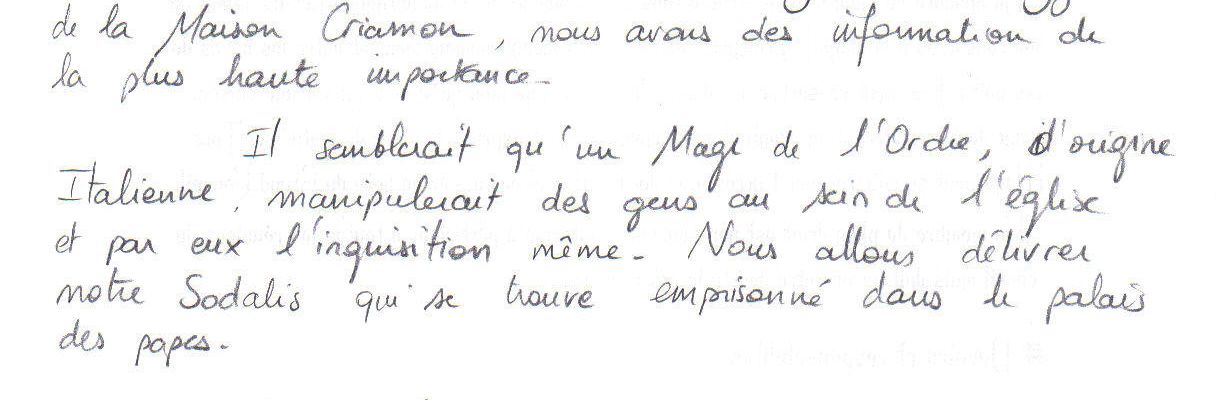 de la Maison Criamon, nous avons des information de
la plus haute importance.
Il semblerait qu'un Mage de l'Ordre, d'origine
Italienne, manipulerait des gens au sein de l'église
et par eux l'inquisition même. Nous allons délivrer
notre Sodalis qui se trouve emprisonné dans le palais
des papes.